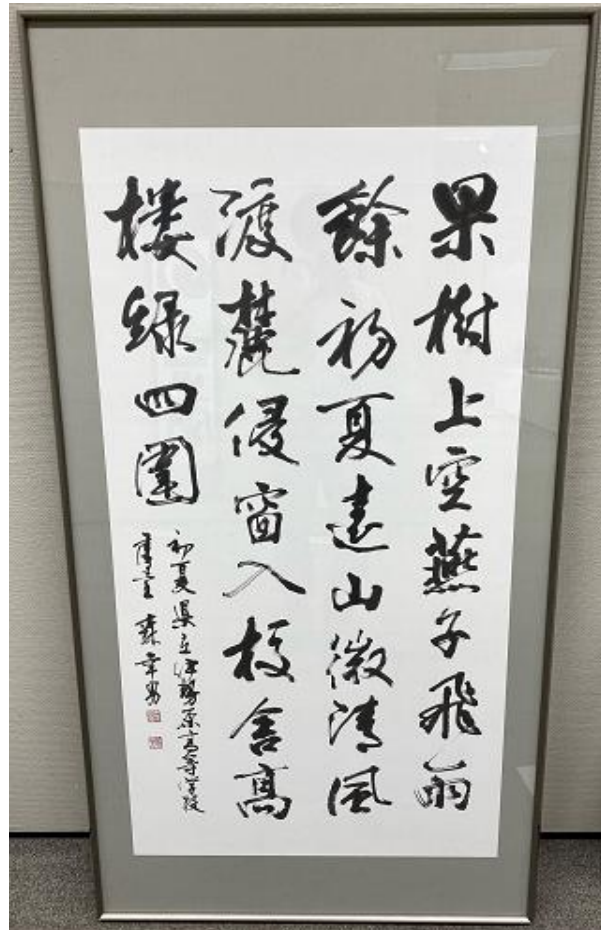 果樹上空燕子飛雨
餘初夏遠山微清風
渡麓侵窗入校舎高
楼緑四圍
初夏県立伊勢原高等学校
森幸男